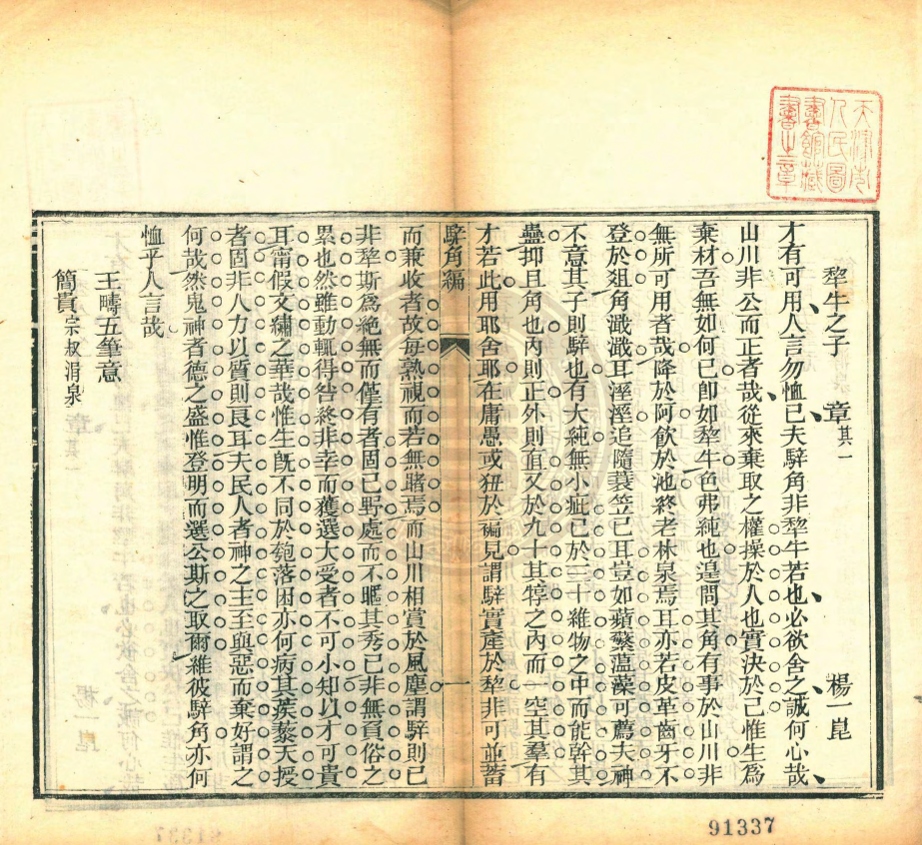 天津市
人民圖
書館藏
書之章
犂牛之子 章其一 楊一崑
才有可用人言勿恤已夫騂角非犂牛若也必欲舍之誠何心哉
山川非公而正者哉從來棄取之權操於人也實決於己惟生爲
棄材吾無如何已卽如犂牛色弗純也遑問其角有事於山川非
無所可用者哉降於阿飮於池終老林泉焉耳亦若皮革齒牙不
登於俎角濈濈耳溼溼追隨蓑笠已耳豈如蘋蘩薀藻可薦夫神
不意其子則騂也有大純無小疵已於三十維物之中而能幹其
蠱抑且角也內則正外則直又於九十其犉之內而一空其羣有
才若此用耶舍耶在庸愚或狃於褊見謂騂實產於犂非可並蓄
騂角編 一
而兼收者故每熟視而若無睹焉而山川相賞於風塵謂騂則已
非犂斯爲絶無而僅有者固已野處而不暱其秀已非無負俗之
累也然雖動輒得咎終非幸而獲選大受者不可小知以才可貴
耳甯假文繡之華哉惟生旣不同於匏落困亦何病其蒺藜天授
者固非人力以質則良耳夫民人者神之主至與惡而棄好謂之
何哉然鬼神者德之盛惟登明而選公斯之取爾維彼騂角亦何
恤乎人言哉
王疇五筆意
簡貴宗叔涓泉
91337